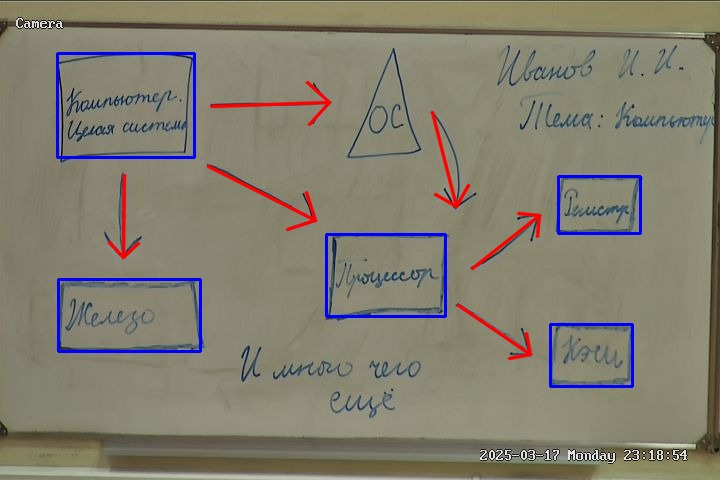 Camera
Иванов И. И.
Тема: Компьютер
Компьютер.
Целая система
ОС
Регистр
Процессор
Железо
Кэш
И много чего
ещё
2025-03-17 Monday 23:18:54